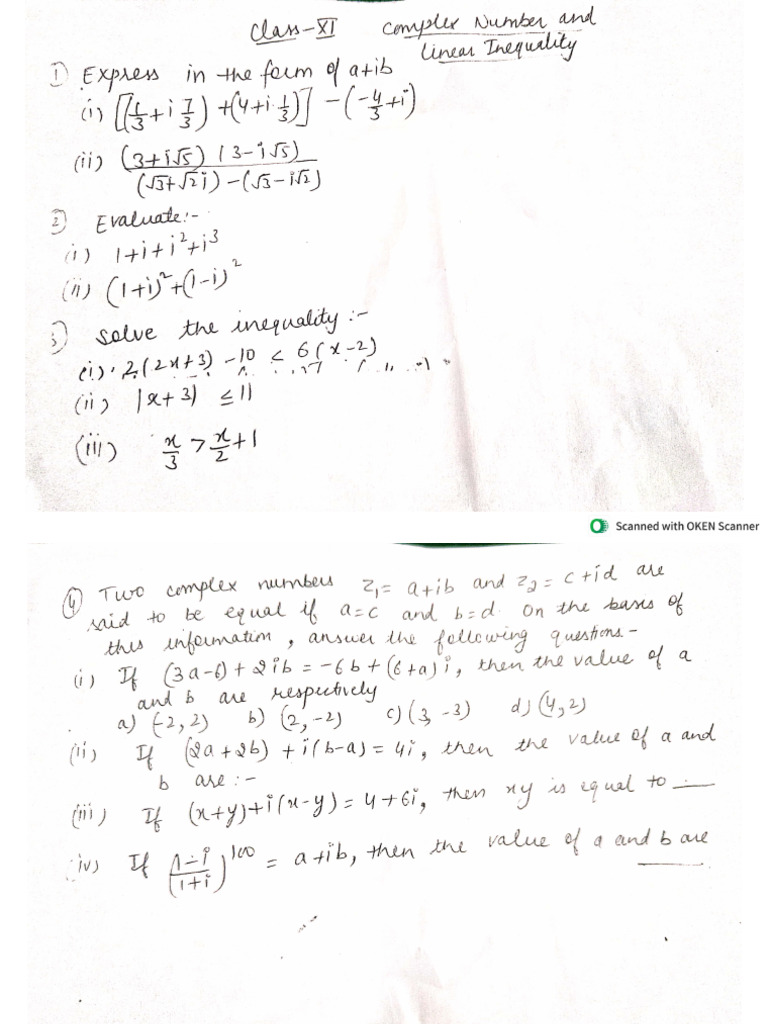 Class-XI Complex Number and
Linear Inequality
1) Express in the form of a+ib
(i) [(1/3+i 7/3) +(4+i 1/3)] - (-4/3+i)
(ii) (3+i√5) (3-i√5) / (√3+√2i)-(√3-i√2)
2) Evaluate:-
(i) 1+i+i²+i³
(ii) (1+i)²+(1-i)²
3) Solve the inequality :-
(i) 2(2x+3) -10 < 6(x-2)
(ii) |x+3| ≤11
(iii) x/3 > x/2 +1
Scanned with OKEN Scanner
4) Two complex numbers z₁= a+ib and z₂= c+id are
said to be equal if a=c and b=d. On the basis of
this information, answer the following questions.-
(i) If (3a-6)+2ib = -6b+(6+a)i, then the value of a
and b are respectively
a) (-2,2) b) (2,-2) c) (3,-3) d) (4,2)
(ii) If (2a+2b) +i(b-a)=4i, then the value of a and
b are :-
(iii) If (x+y)+i(x-y)=4+6i, then xy is equal to __
(iv) If (1-i/1+i)^100 = a+ib, then the value of a and b are __